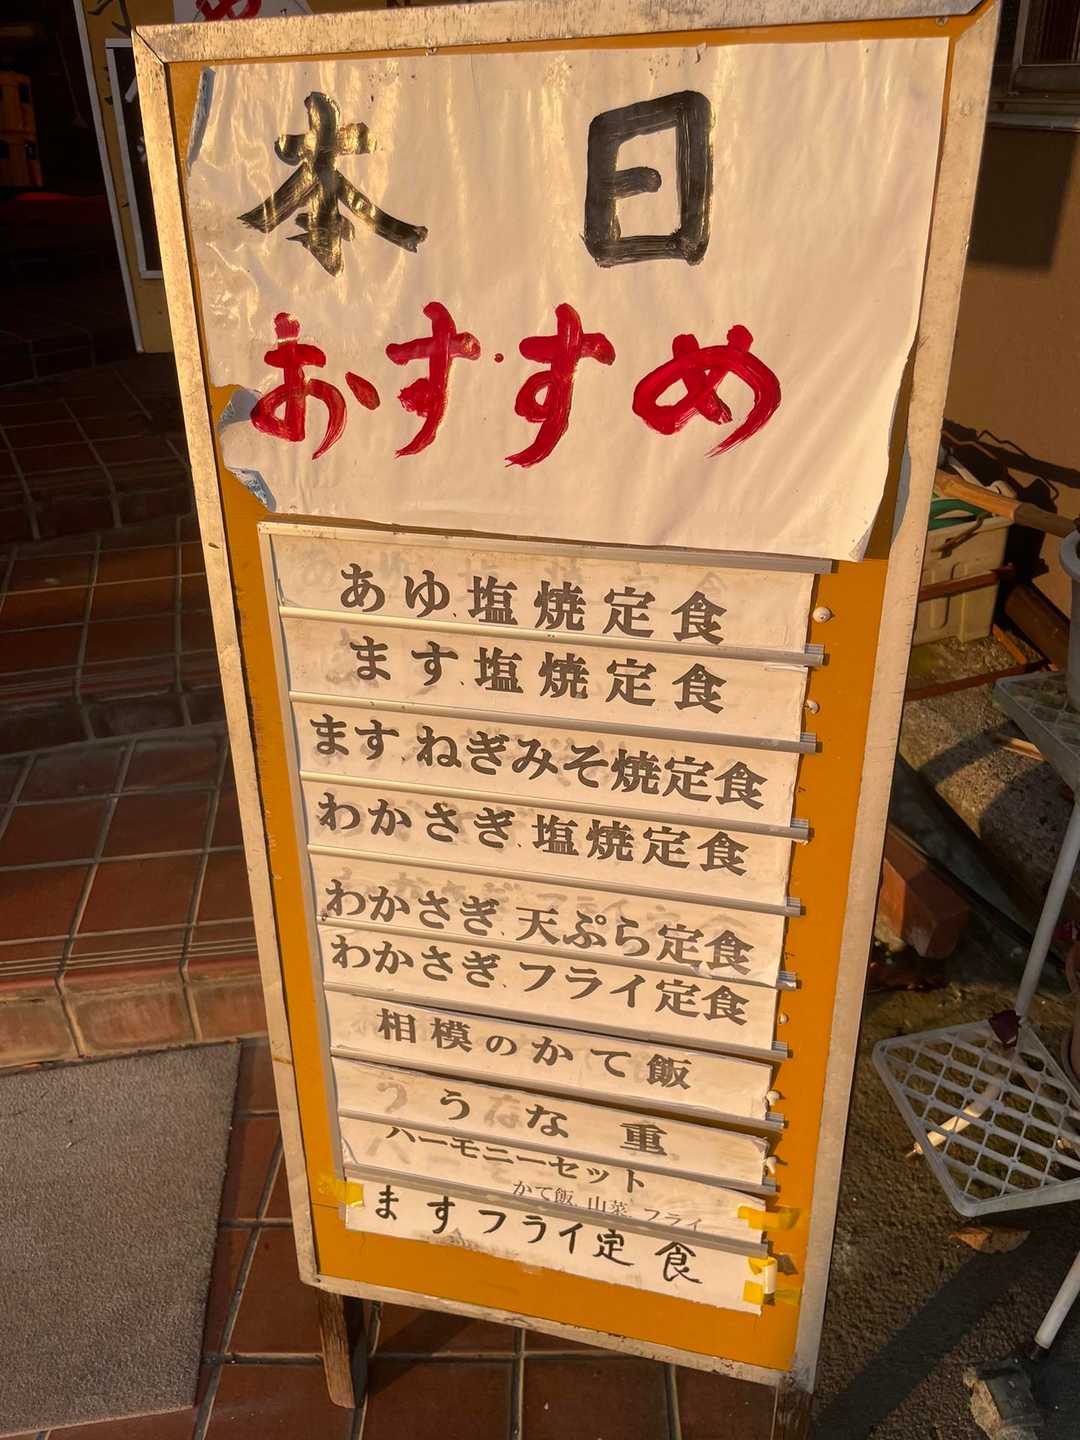 本日
おすすめ
あゆ塩焼定食
ます塩焼定食
ます.ねぎみそ焼定食
わかさぎ.塩焼定食
わかさぎ.天ぷら定食
わかさぎ.フライ定食
相模のかて飯
うな重
ハーモニーセット
かて飯、山菜、フライ
ますフライ定食